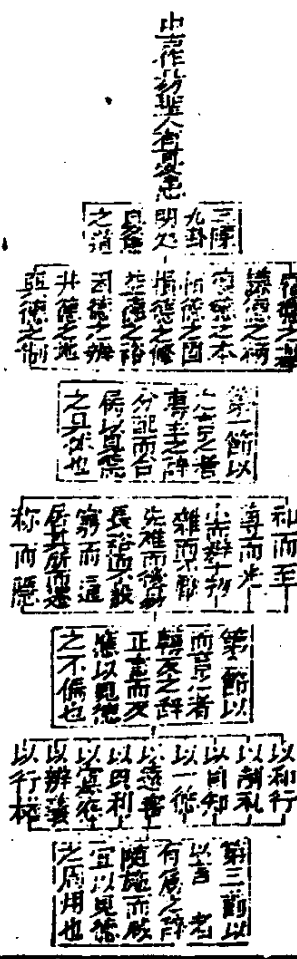 中古作易聖人有其憂患
三陳
九卦
明处
憂患
之道
履德之基
謙德之柄
復德之本
恒德之固
損德之修
益德之裕
困德之辨
井德之地
巽德之制
第一節以
之言之者
專主之辞
分配而合
以見德
之具也
礼而至
尊而光
小而辨于物
雜而不厭
先难而後易
長裕而不設
窮而通
居其所而遷
称而隱
第二節以
而言之者
轉反之辞
正言而反
應以見德
之不偏也
以和行
以制礼
以自知
以一德
以遠害
以興利
以寡怨
以辨義
以行权
第三節以
以言者
有為之辞
随施而咸
宜以見德
之周用也